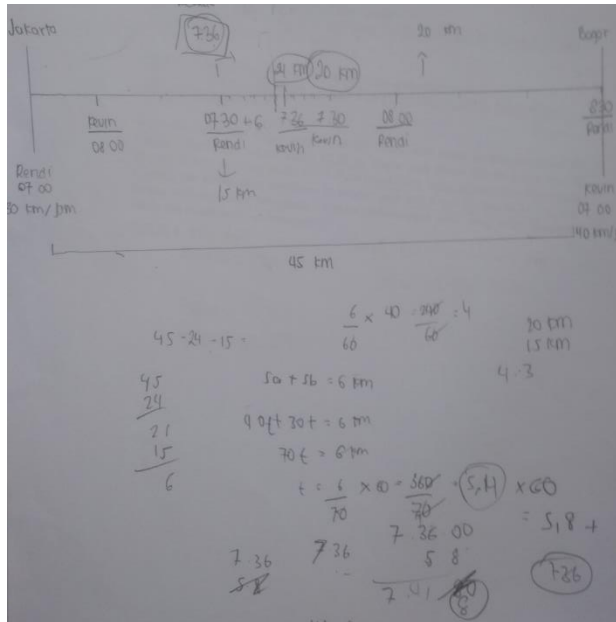 Jakarta
Bogor
736
20 km
24 km 20 km
Kevin
08 00
07 30 + 6
Rendi
7 36
Kevin
7 30
Kevin
08 00
Rendi
8 30
Rendi
15 km
Rendi
07 00
30 km/jam
Kevin
07 00
40 km/j
45 km
45 - 24 - 15 =
6/60 × 40 = 240/60 = 4
20 km
15 km
4 . 3
45
24
21
15
6
Sa + Sb = 6 km
40t + 30t = 6 km
70t = 6 km
t = 6/70 × 60 = 360/70 = 5,14 × 60
= 5,8 +
736
7.36
7 36
7.36 00
5 8
7.41
8